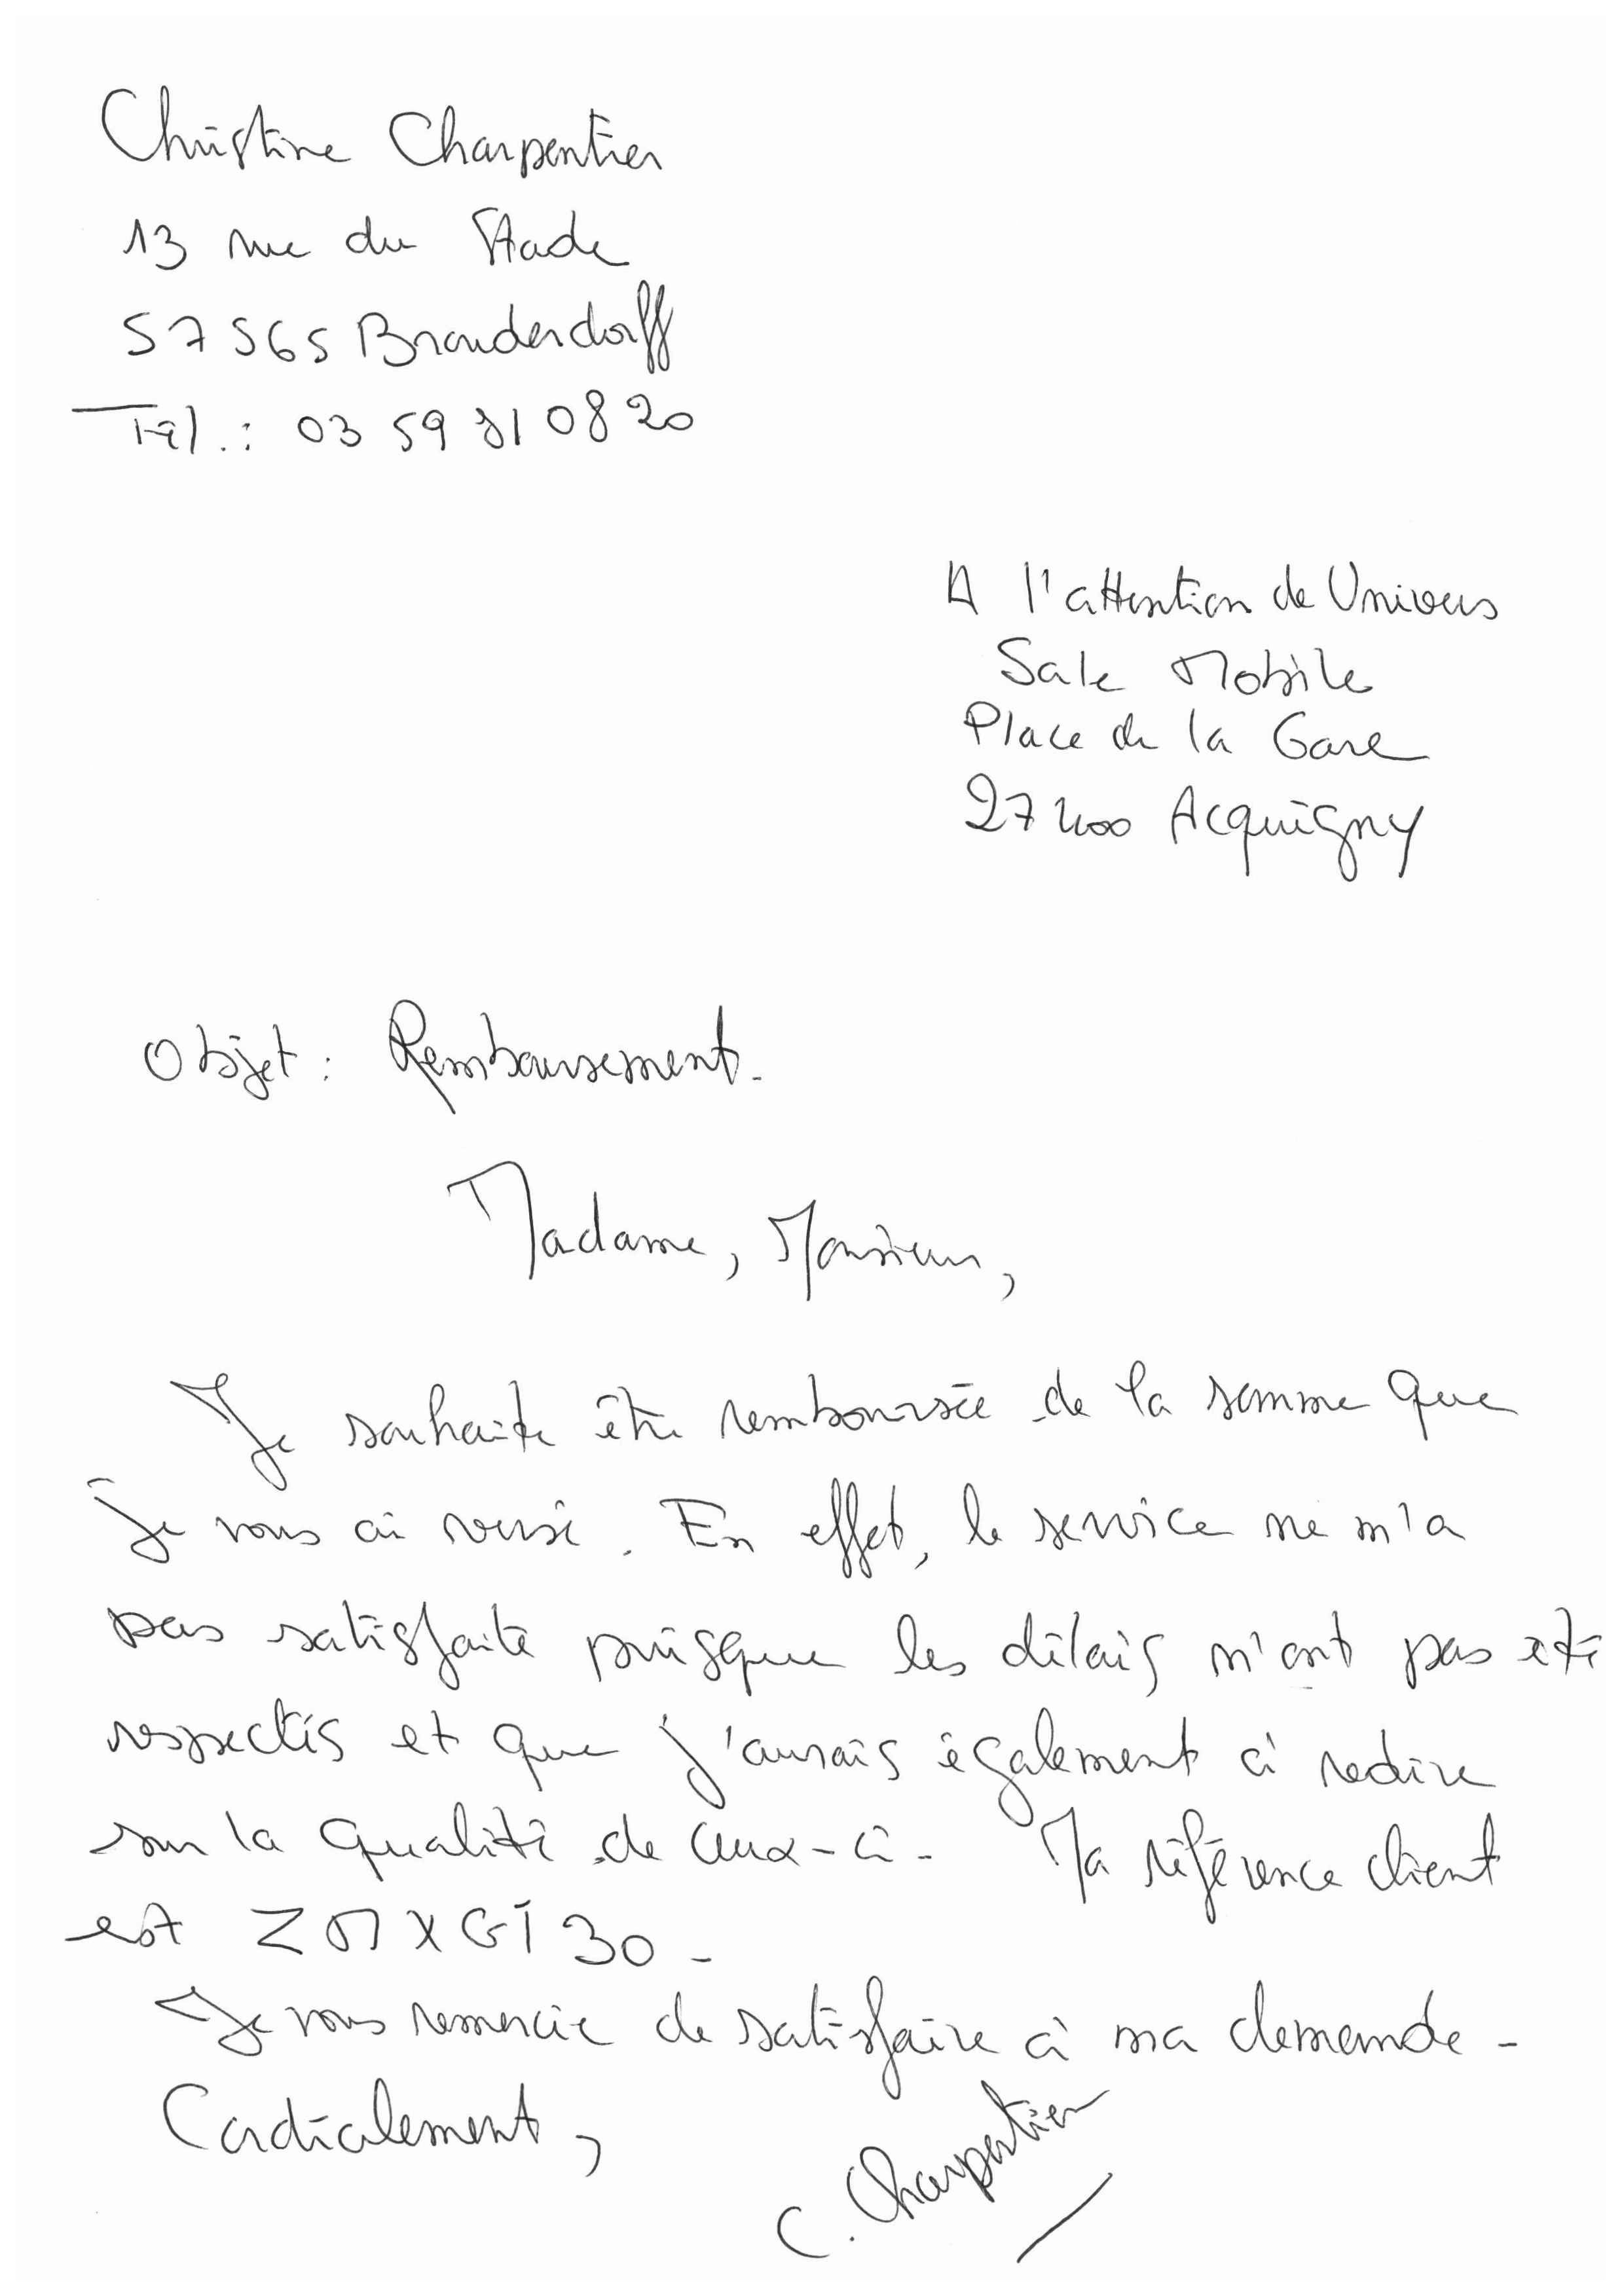 Christine Charpentier
13 rue du Stade
57565 Brouderdorff
Tél.: 03 59 81 08 20
A l'attention de Univers
Sale Mobile
Place de la Gare
27400 Acquigny
Objet : Remboursement.
Madame, Monsieur,
Je souhaite être remboursée de la somme que
je vous ai versé. En effet, le service ne m'a
pas satisfaite puisque les délais n'ont pas été
respectés et que j'aurais également à redire
sur la qualité de ceux-ci. Ma référence client
est ZMXGI30.
Je vous remercie de satisfaire à ma demande.
Cordialement,
C. Charpentier